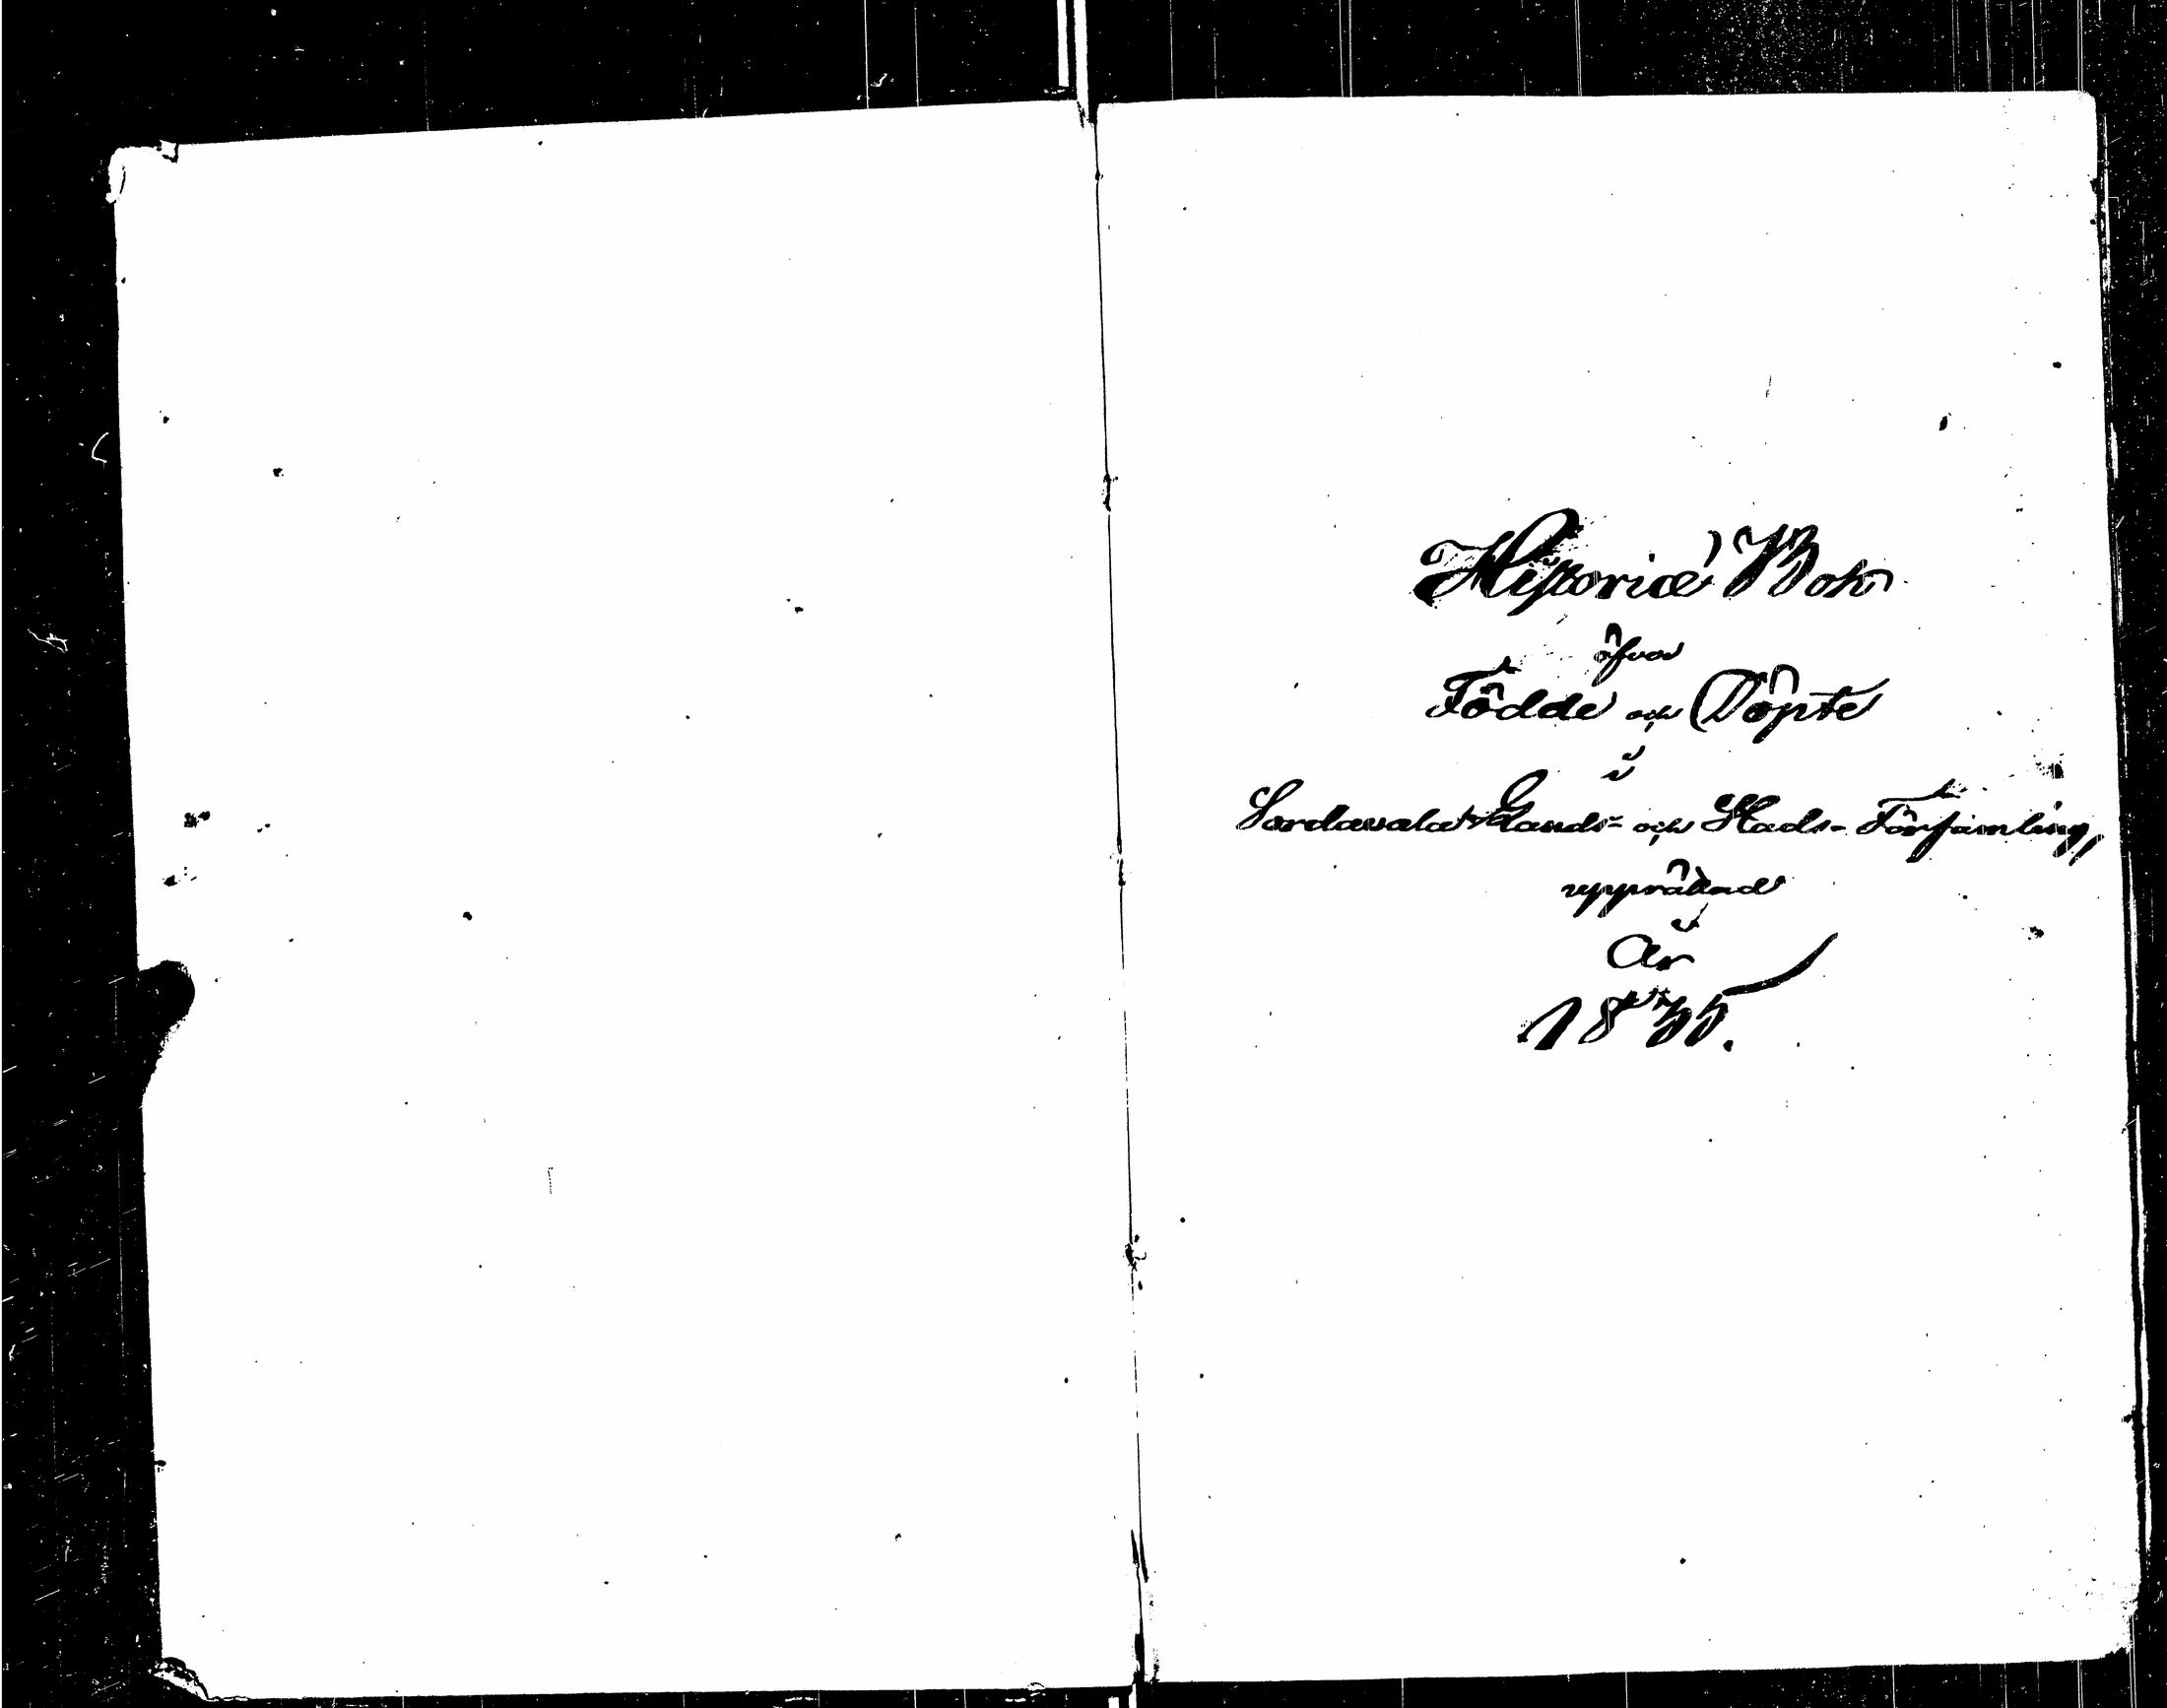 Historiæ Bok
öfver
Födde och Döpte
i
Sordavala Lands- och Stads- Församling,
upprättad
År
1835.